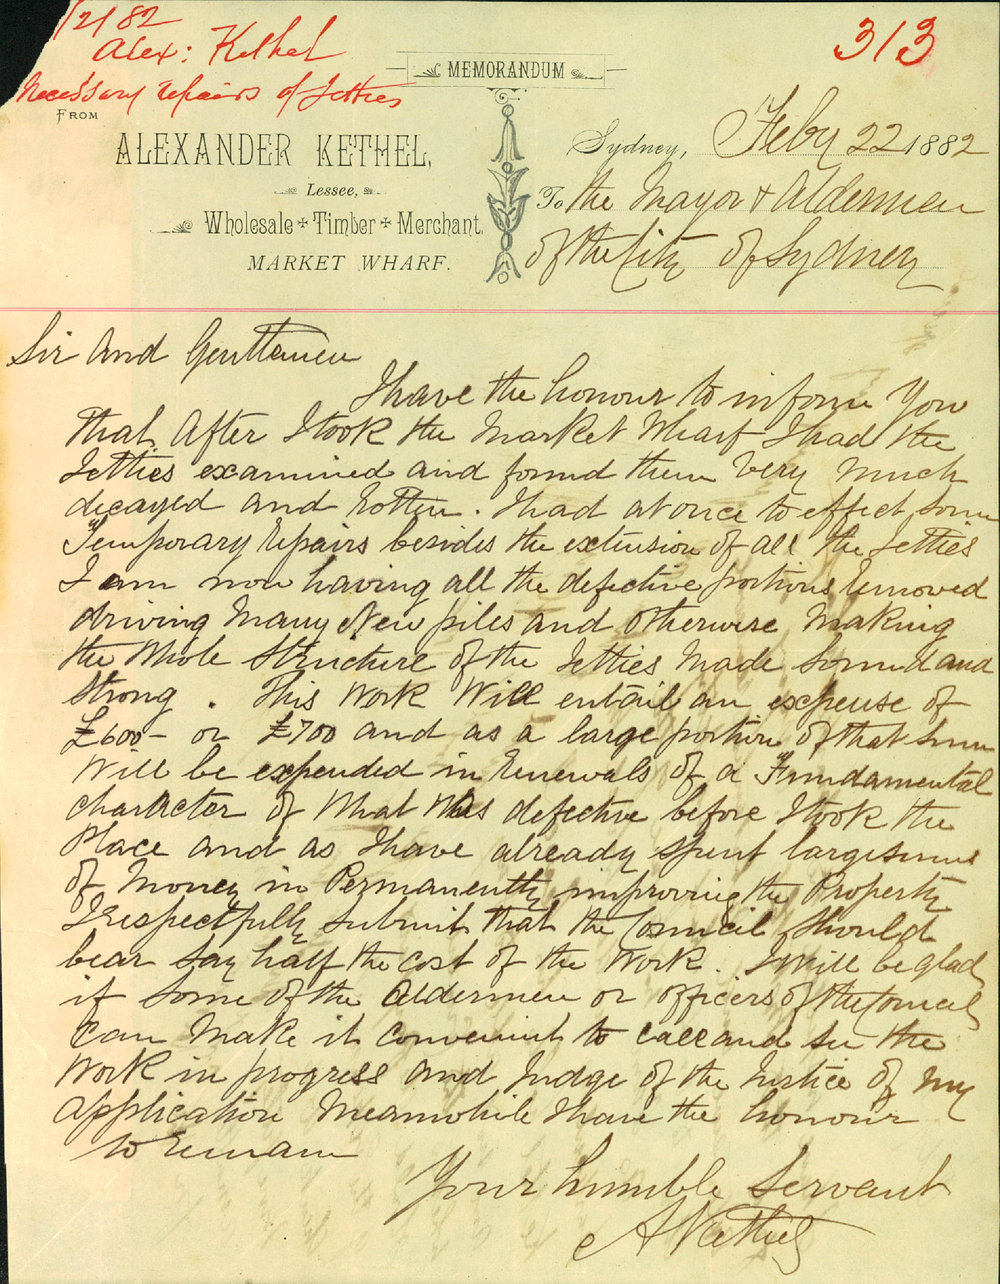 /2/82
313
Alex: Kethel
Necessary repairs of Jetties
MEMORANDUM
FROM
ALEXANDER KETHEL,
Lessee,
Wholesale + Timber + Merchant.
MARKET WHARF.
Sydney, Feby 22 1882
To the Mayor & Aldermen
of the City of Sydney
Sir and Gentlemen
I have the honour to inform You
that After I took the Market Wharf I had the
Jetties examined and found them Very Much
decayed and Rotten. I had at once to effect Some
Temporary repairs besides the extension of all the Jetties
I am now having all the defective portions removed
driving Many New piles and otherwise Making
the Whole Structure of the Jetties Made Sound and
Strong. This Work Will entail an expense of
£600- or £700 and as a large portion of that Sum
Will be expended in Renewals of a Fundamental
character of What Was defective before I took the
Place and as I have already spent large sums
of Money in Permanently improving the Property
I respectfully Submit that the Council Should
bear Say half the cost of the Work. I Will be glad
if Some of the Aldermen or officers of the Council
Can Make it Convenient to call and See the
Work in progress and Judge of the Justice of My
Application Meanwhile I have the honour
to remain
Your humble Servant
A Kethel